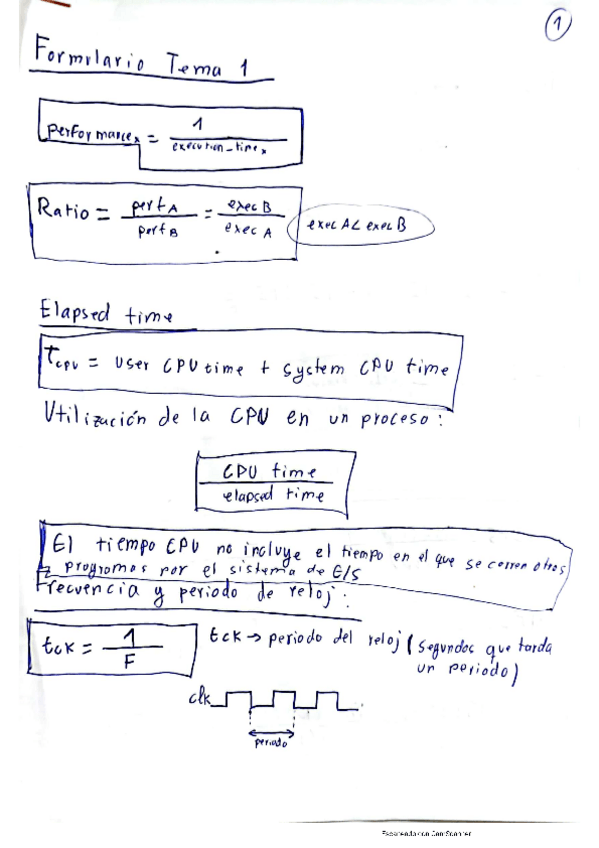 1
Formulario Tema 1
performance x = 1 / execution_time x
Ratio = perf A / perf B = exec B / exec A
exec A < exec B
Elapsed time
Tcpu = user CPU time + System CPU time
Utilización de la CPU en un proceso:
CPU time / elapsed time
El tiempo CPU no incluye el tiempo en el que se corren otros
programas por el sistema de E/S
Frecuencia y periodo de reloj:
tck = 1 / F
tck → periodo del reloj (segundos que tarda
un periodo)
clk
periodo
Escaneado con CamScanner